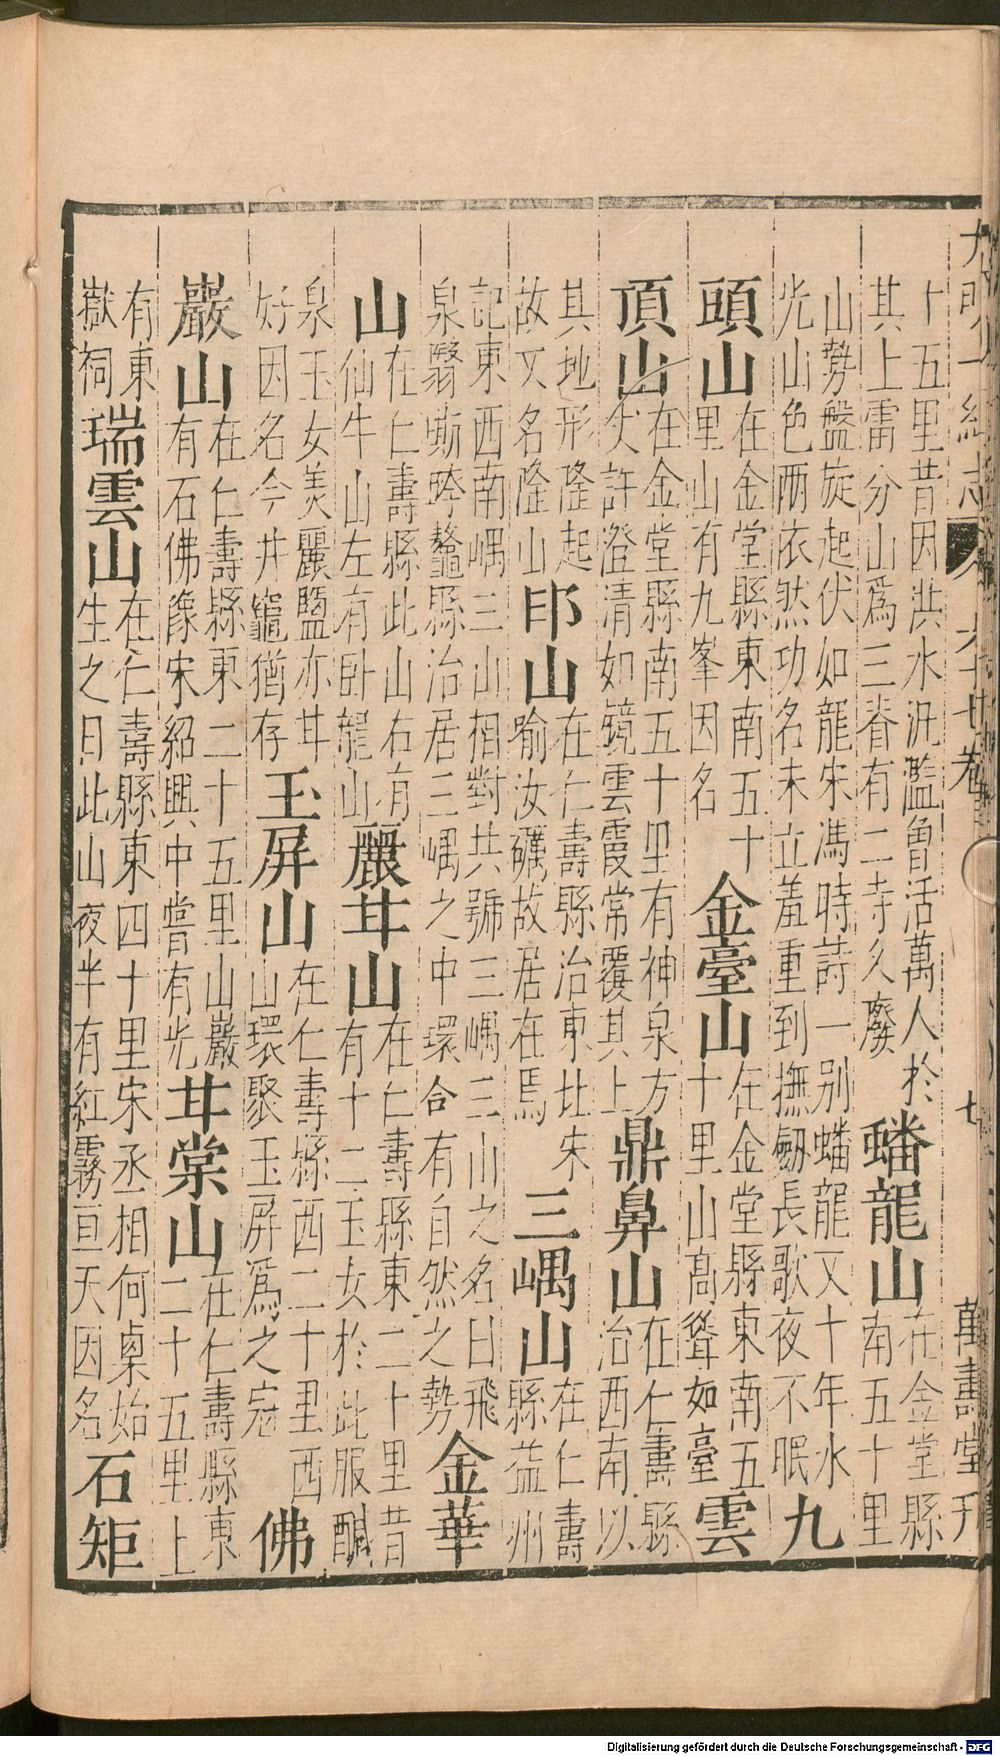 大明一統志 六十七卷 七 萬壽堂刊
十五里昔因洪水汎濫魯活萬人於
其上雷分山爲三脊有二寺久廢
蟠龍山
在金堂縣
南五十里
山勢盤旋起伏如龍宋馮時詩一别蟠龍又十年水
光山色兩依然功名未立羞重到撫劒長歌夜不眠
九
頭山
在金堂縣東南五十
里山有九峯因名
金臺山
在金堂縣東南五
十里山高聳如臺
雲
頂山
在金堂縣南五十里有神泉方
丈許澄清如鏡雲霞常覆其上
鼎鼻山
在仁壽縣
治西南以
其地形隆起
故又名隆山
印山
在仁壽縣治東北宋
喻汝礪故居在焉
三嵎山
在仁壽
縣益州
記東西南嵎三山相對共號三嵎三山之名曰飛
泉翳嘶跨鼇縣治居三嵎之中環合有自然之勢
金華
山
在仁壽縣此山右有
仙牛山左有卧龍山
麗甘山
在仁壽縣東二十里昔
有十二玉女於此服醎
泉玉女美麗鹽亦甘
好因名今井竈猶存
玉屏山
在仁壽縣西二十里西
山環聚玉屏爲之冠
佛
巖山
在仁壽縣東二十五里山巖
有石佛像宋紹興中嘗有光
甘棠山
在仁壽縣東
二十五里上
有東
嶽祠
瑞雲山
在仁壽縣東四十里宋丞相何㮚始
生之日此山夜半有紅霧亘天因名
石矩
Digitalisierung gefördert durch die Deutsche Forschungsgemeinschaft - DFG